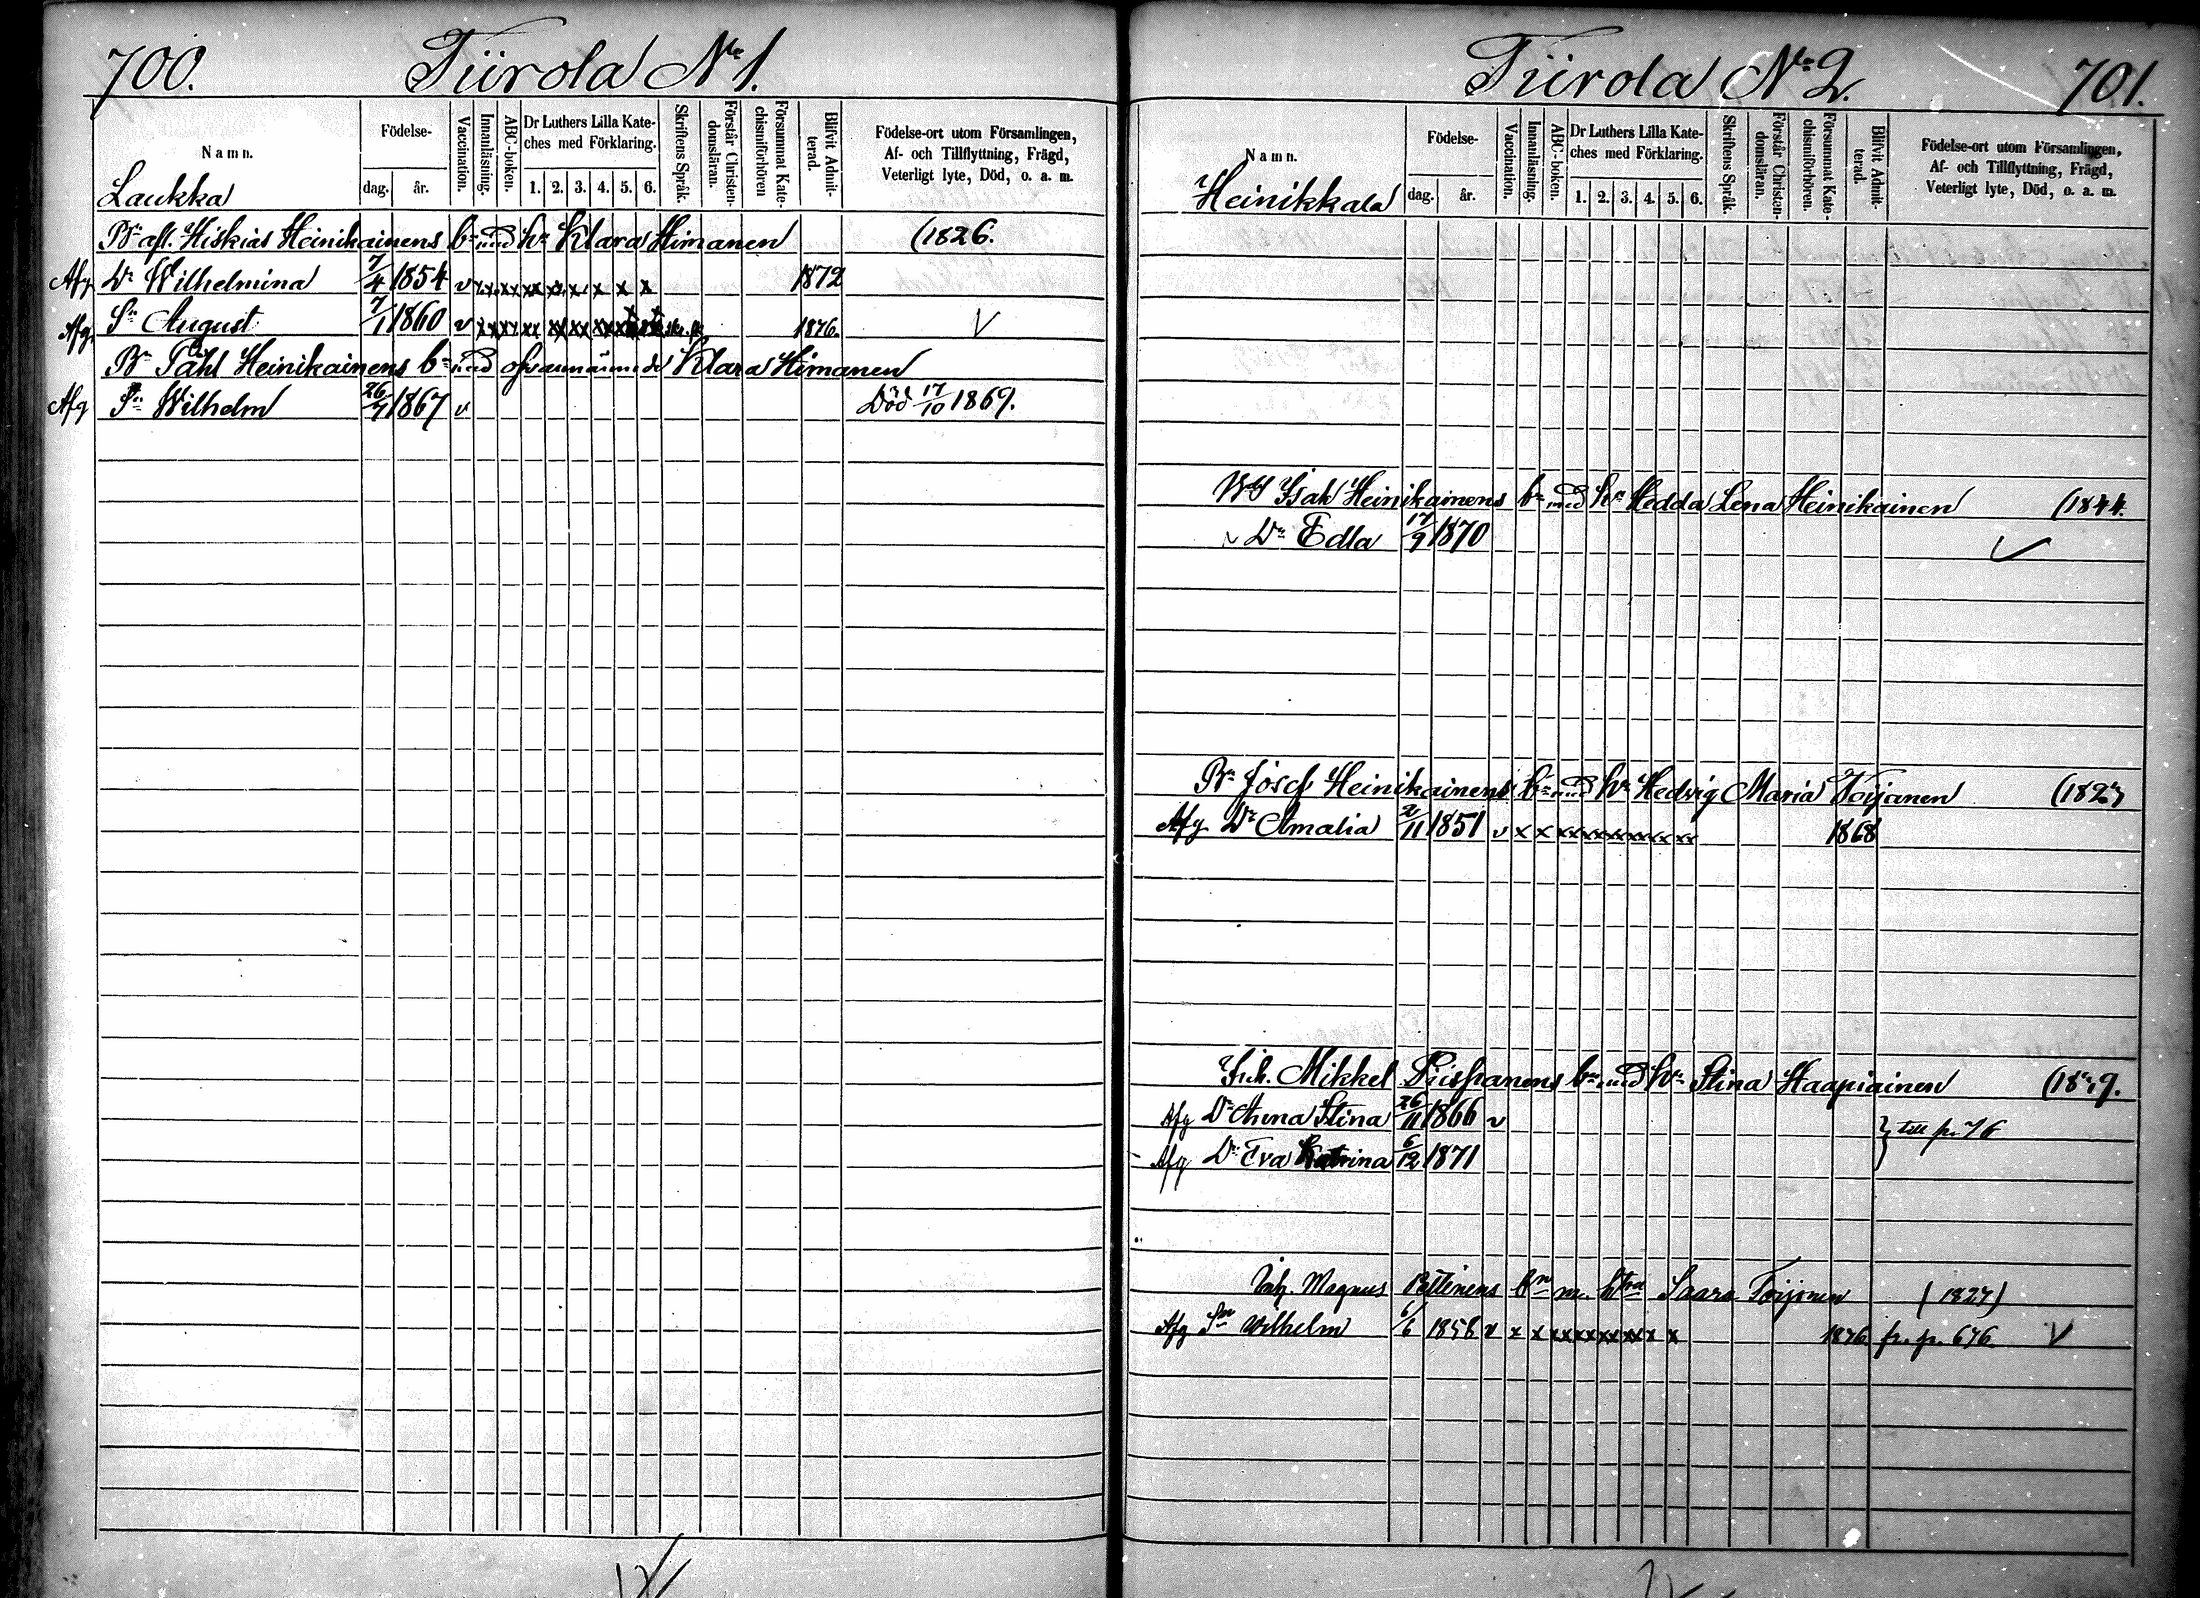 700. Tiirola No 1.
Namn.
Födelse-
dag. år.
Vaccination.
Innanläsning.
ABC-boken.
Dr Luthers Lilla Kate-
ches med Förklaring.
1. 2. 3. 4. 5. 6.
Skriftens Språk.
Förstår Christen-
domsläran.
Försummat Kate-
chismiförhören
Blifvit Admit-
terad.
Födelse-ort utom Församlingen,
Af- och Tillflyttning, Frägd,
Veterligt lyte, Död, o. a. m.
Laukka
Bn afl. Hiskias Heinikainens bn med hn Klara Himanen (1826.
Afg Dr Wilhelmina 7/4 1854 v xx xx xx xx x x x 1872
Afg. Sn August 7/1 1860 v 1876. V
Bn Påhl Heinikainens bn med ofvannämnde Klara Himanen
Afg Sn Wilhelm 26/7 1867 v Död 17/10 1869.
Tiirola No 2. 701.
Namn.
Födelse-
dag. år.
Vaccination.
Innanläsning.
ABC-boken.
Dr Luthers Lilla Kate-
ches med Förklaring.
1. 2. 3. 4. 5. 6.
Skriftens Språk.
Förstår Christen-
domsläran.
Försummat Kate-
chismiförhören.
Blifvit Admit-
terad.
Födelse-ort utom Församlingen,
Af- och Tillflyttning, Frägd,
Veterligt lyte, Död, o. a. m.
Heinikkala
Isak Heinikainens bn med hn Hedda Lena Heinikainen (1844.
v Dr Edla 17/9 1870
Bn Josef Heinikainens bn med hn Hedvig Maria Toijanen (1827
Afg Dr Amalia 2/11 1851 v x x xx xx xx xx xx xx 1868
Inh. Mikkel bn med hn Stina Haapiainen
Afg Dr Anna Stina 26/11 1866 v
} till p. 76
Afg Dr Eva Katrina 6/12 1871
Inh. Magnus Pettinens bn m. Saara Toijonen (1827)
Afg Sn Wilhelm 6/6 1858 v x x xx xx xx xx x x 1876. fr. p. 676. V